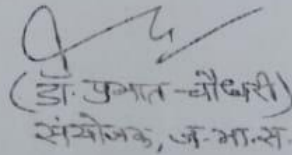 (डॉ. प्रभात चौधरी)
संयोजक, ज.भा.स.